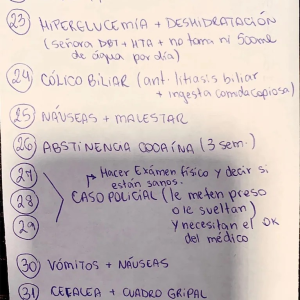 23 HIPERGLUCEMIA + DESHIDRATACIÓN
(señora DBT + HTA + no toma ni 500ml
de água por día)
24 CÓLICO BILIAR (ant. litiasis biliar
+ ingesta comida copiosa)
25 NÁUSEAS + MALESTAR
26 ABSTINENCIA COCAÍNA (3 sem.)
27 Hacer Exámen físico y decir si
están sanos.
28 CASO POLICIAL (le meten preso
o le sueltan)
29 y necesitan el OK
del médico
30 VÓMITOS + NÁUSEAS
31 CEFALEA + CUADRO GRIPAL